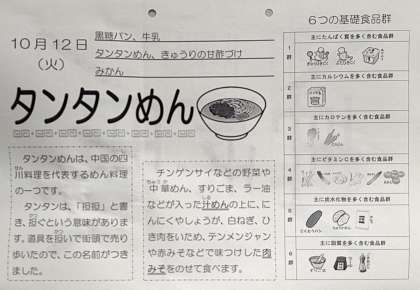 10月12日
(火)
黒糖パン、牛乳
タンタンめん、きゅうりの甘酢づけ
みかん
タンタンめん
タンタンめんは、中国の四
川料理を代表するめん料理
の一つです。
タンタンは、「担担」と書
き、担ぐという意味がありま
す。道具を担いで街頭で売り
歩いたので、この名前がつき
ました。
チンゲンサイなどの野菜や
中華めん、すりごま、ラー油
などが入った汁めんの上に、に
んにくやしょうが、白ねぎ、ひ
き肉をいため、テンメンジャン
や赤みそなどで味つけした肉
みそをのせて食べます。
6つの基礎食品群
1群
主にたんぱく質を多く含む食品群
2群
主にカルシウムを多く含む食品群
3群
主にカロテンを多く含む食品群
4群
主にビタミンCを多く含む食品群
5群
主に炭水化物を多く含む食品群
6群
主に脂質を多く含む食品群